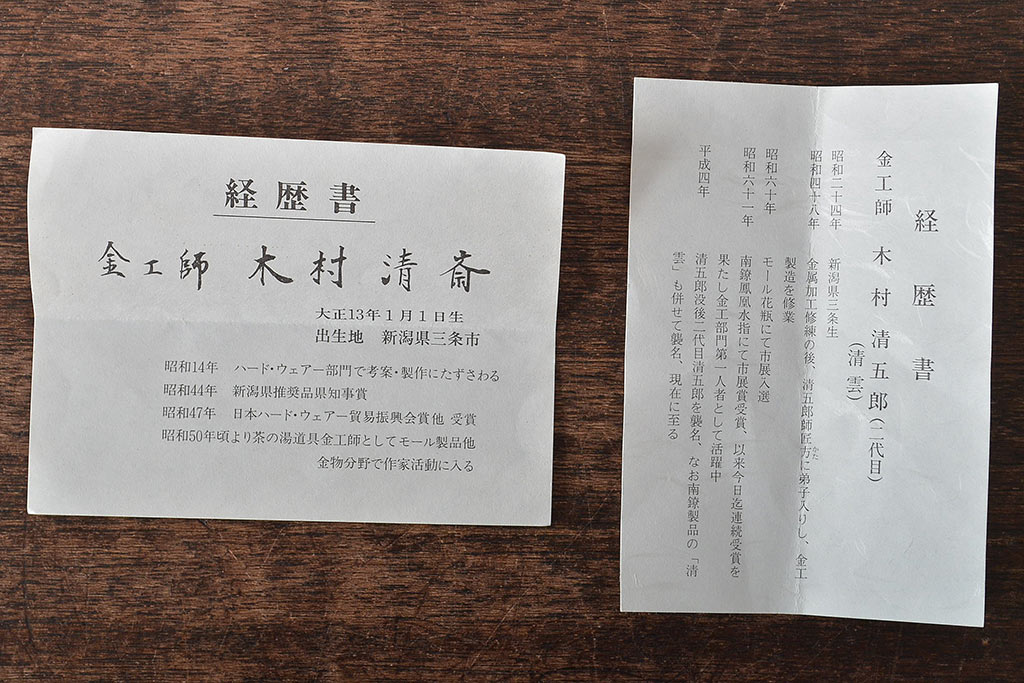 経歴書
金工師 木村 清斎
大正13年1月1日生
出生地 新潟県三条市
昭和14年 ハード・ウェアー部門で考案・製作にたずさわる
昭和44年 新潟県推奨品県知事賞
昭和47年 日本ハード・ウェアー貿易振興会賞他 受賞
昭和50年頃より茶の湯道具金工師としてモール製品他
金物分野で作家活動に入る
経歴書
金工師 木村 清五郎(二代目)
(清雲)
昭和二十四年 新潟県三条生
昭和四十八年 金属加工修練の後、清五郎師匠方に弟子入りし、金工
かた
製造を修業
昭和六十年 モール花瓶にて市展入選
昭和六十一年 南鐐鳳凰水指にて市展賞受賞、以来今日迄連続受賞を
果たし金工部門第一人者として活躍中
平成四年 清五郎没後二代目清五郎を襲名、なお南鐐製品の「清
雲」も併せて襲名、現在に至る